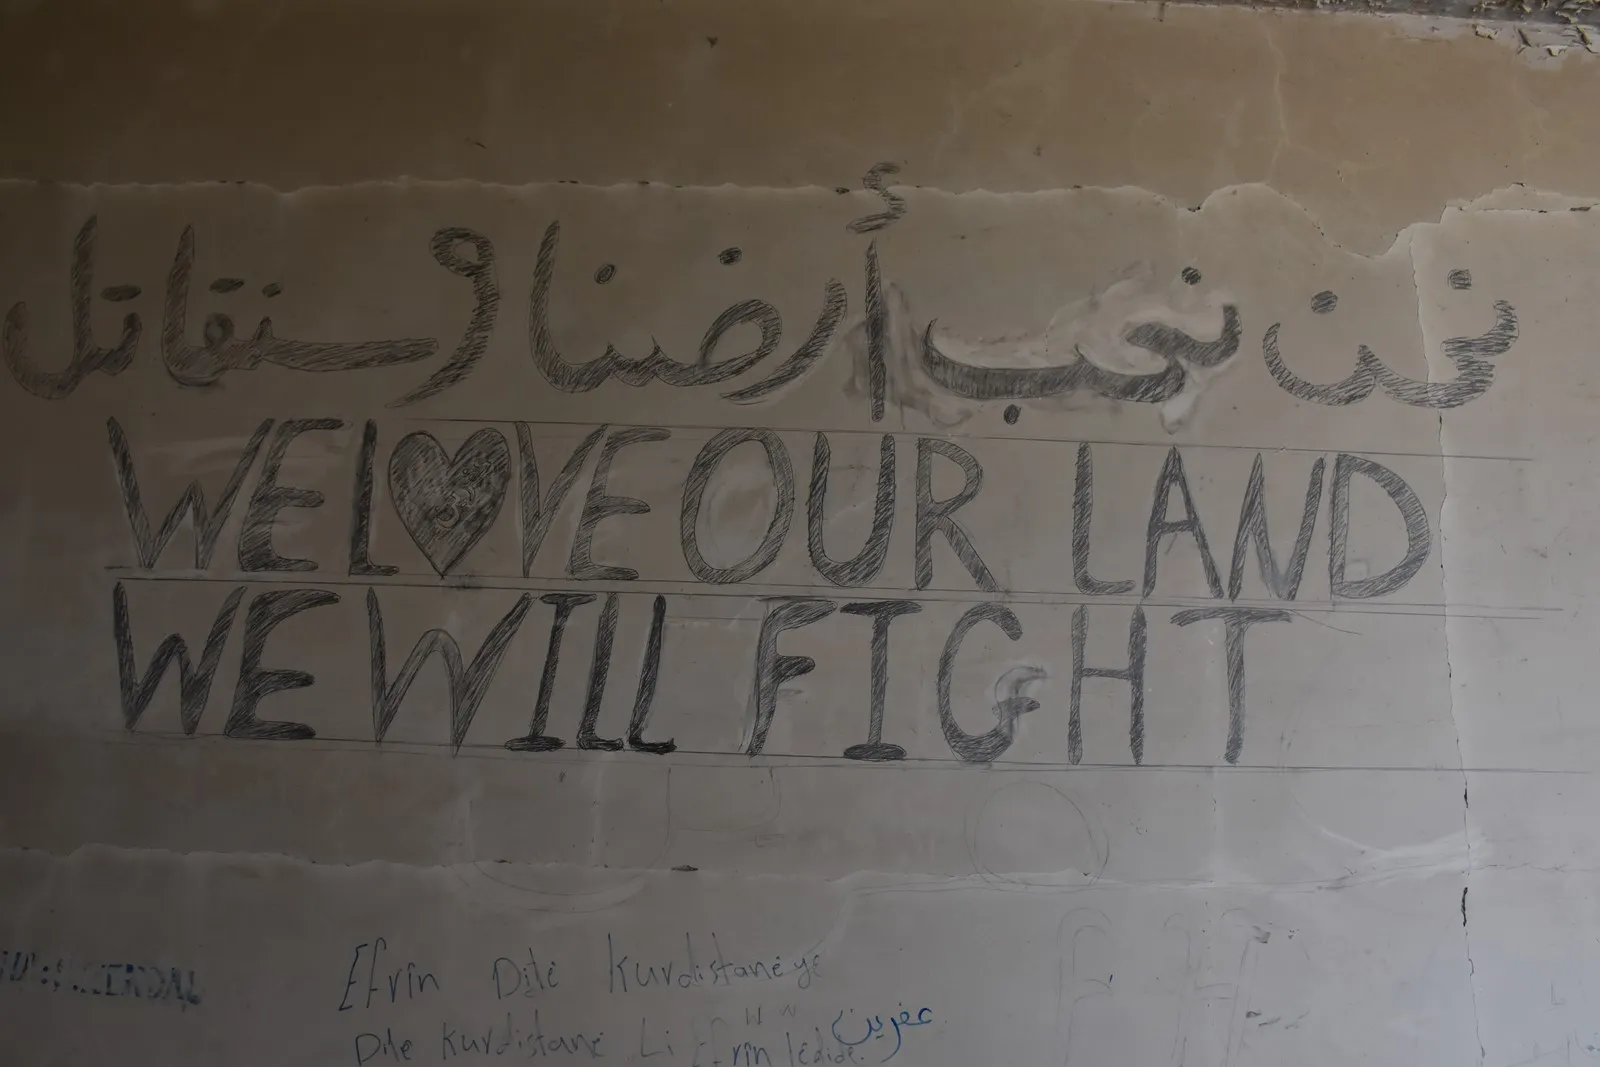 نحن نحب أرضنا وسنقاتل
WE LOVE OUR LAND
WE WILL FIGHT
Efrîn Dilê Kurdistanê yê
Dilê Kurdistanê Li Efrîn lêdide.
عفرين